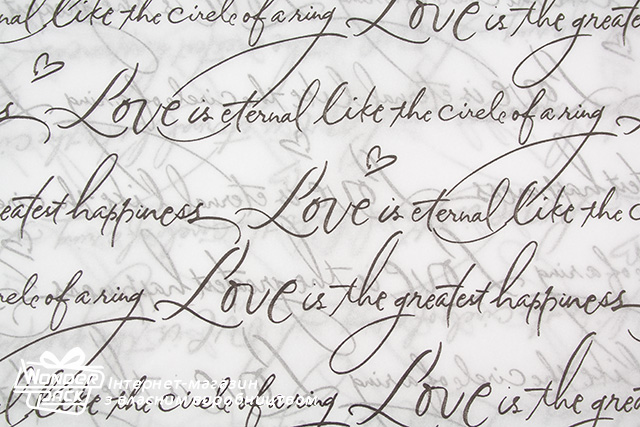 nal like the circle of a ring Love is the greate
s Love is eternal like the circle of a ring
eatest happiness Love is eternal like the c
rcle of a ring Love is the greatest happiness
l like the circle of a ring Love is the great
Wonder pack
Інтернет-магазин
з власним виробництвом